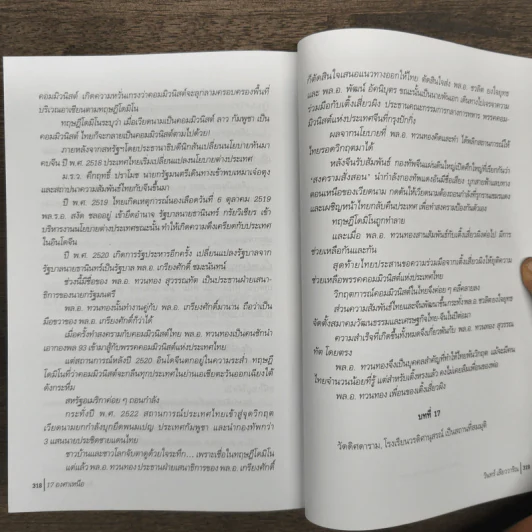 คอมมิวนิสต์ เกิดความหวั่นเกรงว่าคอมมิวนิสต์จะลุกลามครอบครองพื้นที่
บริเวณอาเซียนตามทฤษฎีโดมิโน
ทฤษฎีโดมิโนระบุว่า เมื่อเวียดนามเป็นคอมมิวนิสต์ ลาว กัมพูชา เป็น
คอมมิวนิสต์ ไทยก็จะกลายเป็นคอมมิวนิสต์ตามไปด้วย!
ภายหลังจากสหรัฐฯโดยประธานาธิบดีนิกสันเปลี่ยนนโยบายหันมา
คบจีน ปี พ.ศ. 2518 ประเทศไทยเริ่มเปลี่ยนแปลงนโยบายต่างประเทศ
ม.ร.ว. คึกฤทธิ์ ปราโมช นายกรัฐมนตรีเดินทางเข้าพบเหมาเจ๋อตุง
และสถาปนาความสัมพันธ์ไทยกับจีนขึ้นมา
ปี พ.ศ. 2519 ไทยเกิดเหตุการณ์นองเลือดวันที่ 6 ตุลาคม 2519
พล.ร.อ. สงัด ชลออยู่ เข้ายึดอำนาจ รัฐบาลนายธานินทร์ กรัยวิเชียร เข้า
บริหารงานนโยบายต่างประเทศขณะนั้น ทำให้เกิดความตึงเครียดกับประเทศ
ในอินโดจีน
ปี พ.ศ. 2520 เกิดการรัฐประหารอีกครั้ง เปลี่ยนแปลงรัฐบาลจาก
รัฐบาลนายธานินทร์เป็นรัฐบาล พล.อ. เกรียงศักดิ์ ชมะนันทน์
ช่วงนี้มีชื่อของ พล.อ. ทวนทอง สุวรรณทัต เป็นประธานฝ่ายเสนา-
ธิการของนายกรัฐมนตรี
พล.อ. ทวนทองนั้นทำงานคู่กับ พล.อ. เกรียงศักดิ์มานาน ถือว่าเป็น
มือขวาของ พล.อ. เกรียงศักดิ์ก็ว่าได้
เมื่อครั้งทำสงครามกับคอมมิวนิสต์ไทย พล.อ. ทวนทองเป็นคนชักนำ
เอากองพล 93 เข้ามาสู้กับพรรคคอมมิวนิสต์แห่งประเทศไทย
แต่สถานการณ์หลังปี 2520 อินโดจีนตกอยู่ในความระส่ำ ทฤษฎี
โดมิโนที่ว่าคอมมิวนิสต์จะกลืนทุกประเทศในย่านเอเชียตะวันออกเฉียงใต้
ดังกระหึ่ม
สหรัฐอเมริกาค่อย ๆ ถอนกำลัง
กระทั่งปี พ.ศ. 2522 สถานการณ์ประเทศไทยเข้าสู่จุดวิกฤต
เวียดนามยกกำลังบุกยึดพนมเปญ ประเทศกัมพูชา และนำกองทัพกว่า
3 แสนนายประชิดชายแดนไทย
ชาวบ้านและชาวโลกจับตาดูด้วยใจระทึก... เพราะเชื่อในทฤษฎีโดมิโน
แต่แล้ว พล.อ. ทวนทอง ประธานฝ่ายเสนาธิการของ พล.อ. เกรียงศักดิ์
318 | 17 องศาเหนือ
ก็ตัดสินใจเสนอแนวทางออกให้ไทย ตัดสินใจส่ง พล.อ. ชวลิต ยงใจยุทธ
และ พล.อ. พัฒน์ อัคนิบุตร ขณะนั้นเป็นนายพันเอก เดินทางไปเจรจาความ
ร่วมมือกับเติ้งเสี่ยวผิง ประธานคณะกรรมการกลางการทหาร พรรคคอม-
มิวนิสต์แห่งประเทศจีนที่กรุงปักกิ่ง
ผลจากนโยบายที่ พล.อ. ทวนทองคิดและทำ ได้พลิกสถานการณ์ให้
ไทยรอดวิกฤตมาได้
หลังจีนรับสัมพันธ์ กองทัพจีนแผ่นดินใหญ่เปิดศึกใหญ่ที่เรียกกันว่า
“สงครามสั่งสอน” นำกำลังกองทัพแดงอันมีชื่อเสียง บุกสายฟ้าแลบทาง
ตอนเหนือของเวียดนาม กดดันให้เวียดนามต้องถอนกำลังที่รุกรานชมรแดง
และเผชิญหน้าไทยกลับคืนประเทศ เพื่อทำสงครามป้องกันตัวเอง
ทฤษฎีโดมิโนถูกทำลาย
และเมื่อ พล.อ. ทวนทองสานสัมพันธ์กับเติ้งเสี่ยวผิงต่อไป มีการ
ช่วยเหลือกันและกัน
สุดท้ายไทยประสานขอความร่วมมือจากเติ้งเสี่ยวผิงให้ยุติความ
ช่วยเหลือพรรคคอมมิวนิสต์แห่งประเทศไทย
วิกฤตการณ์คอมมิวนิสต์ในไทยจึงค่อย ๆ คลี่คลายลง
ส่วนความสัมพันธ์ไทยและจีนพัฒนาขึ้นกระทั่งพล.อ. ชวลิตยงใจยุทธ
จัดตั้งสมาคมวัฒนธรรมและเศรษฐกิจไทย-จีนในปีต่อมา
ความสำเร็จที่เกิดขึ้นทั้งหมดจึงเกี่ยวพันกับ พล.อ. ทวนทอง สุวรรณ
ทัต โดยตรง
พล.อ. ทวนทองจึงเป็นบุคคลสำคัญที่ทำให้ไทยพ้นวิกฤต แม้จะมีคน
ไทยจำนวนน้อยที่รู้ แต่สำหรับเติ้งพรวงแล้ว คงไม่เคยลืมเพื่อนของพ่อ
พล.อ. ทวนทอง เพื่อนของเติ้งเสี่ยวผิง
บทที่ 17
วัดดิศดาราม, โรงเรียนวรดิศานุสรณ์ เป็นสถานที่สมมุติ
วินทร์ เลียววาริณ | 319